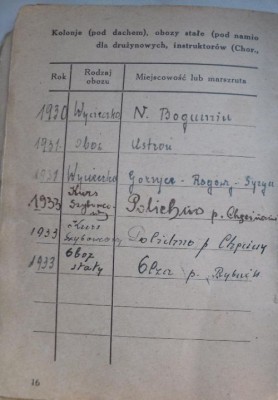 Kolonje (pod dachem), obozy stałe (pod namio
dla drużynowych, instruktorów (Chor.,
Rok Rodzaj obozu Miejscowość lub marszruta
1930 Wycieczka N. Bogumin
1931 Obóz Ustroń
1932 Wycieczka Gorzyce - Rogowy -
1933 Kurs Szybowcowy Polichno p. Chęcinami
1933 Kurs Szybowcowy Polichno p Chęciny
1933 Obóz stały Olza p. Rybnik
16